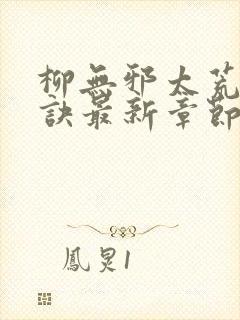 柳無邪太荒
訣最新章節
鳳炅1